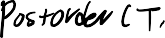 Postorder (T,